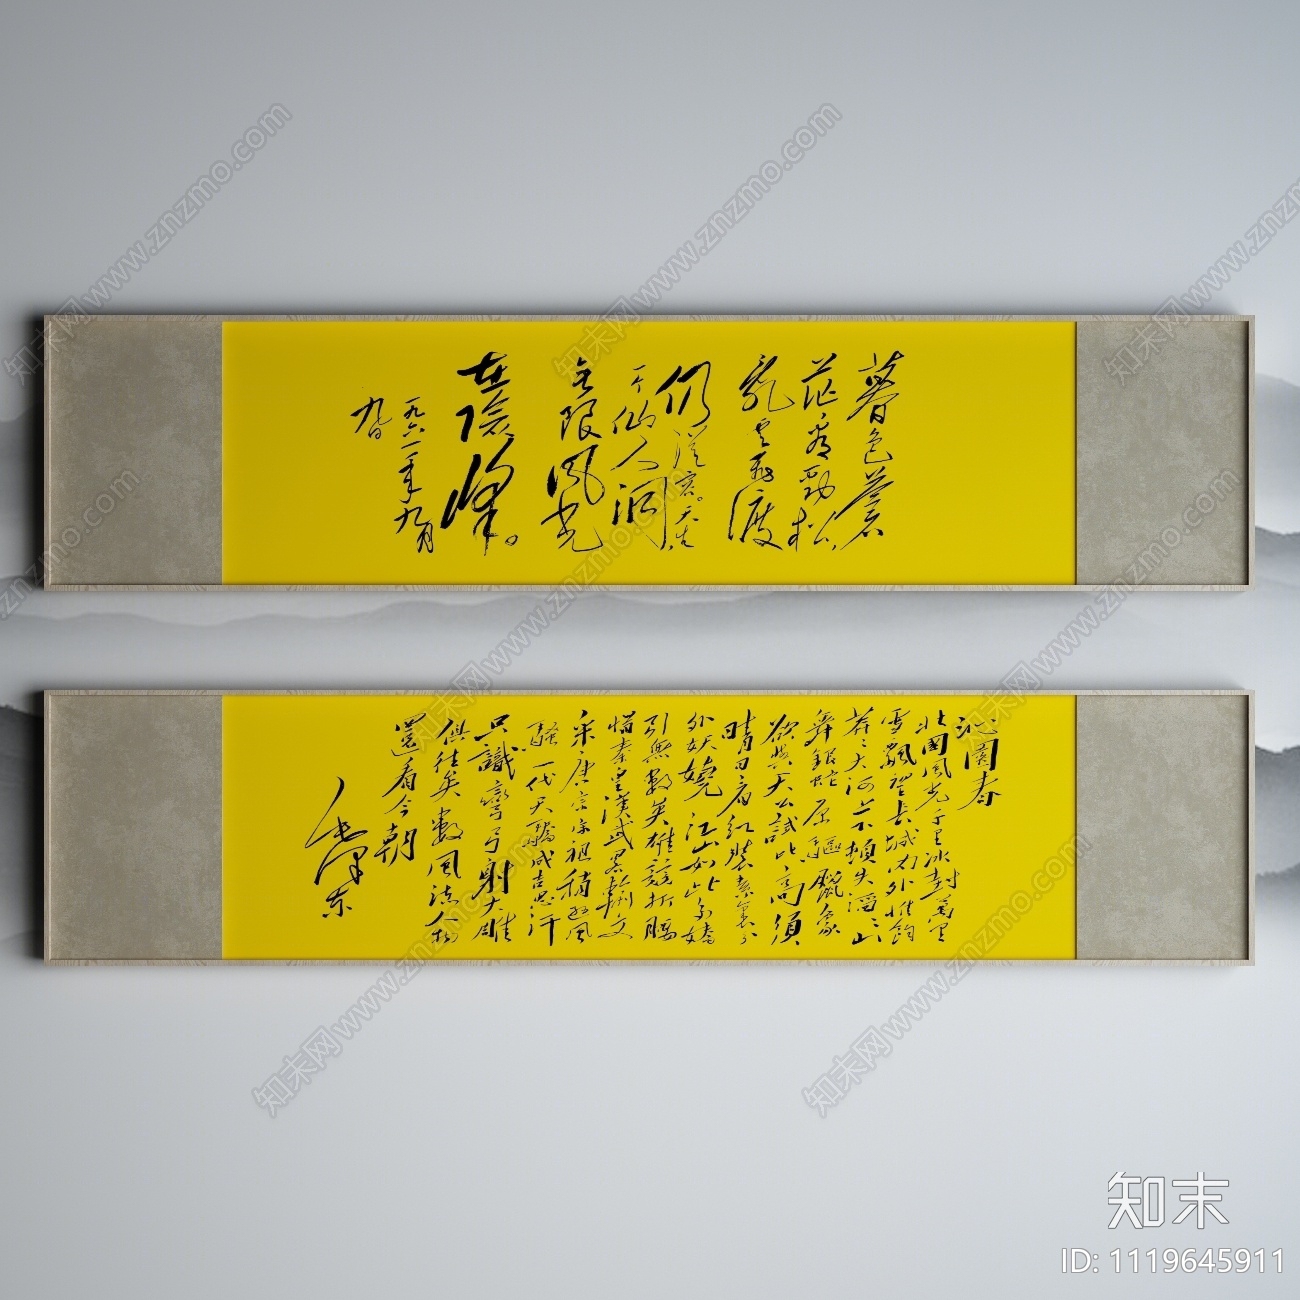 暮色蒼
茫看勁松，
乱云飛渡
仍從容。天生
一个仙人洞，
无限風光
在險峰。
一九六一年九月
九日
沁園春
北國風光千里冰封萬里
雪飄望長城內外惟餘
莽莽大河上下頓失滔滔山
舞銀蛇原驅臘象
欲與天公試比高須
晴日看紅裝素裹分
外妖嬈江山如此多嬌
引無數英雄競折腰
惜秦皇漢武略輸文
采唐宗宋祖稍遜風
騷一代天驕成吉思汗
只識彎弓射大雕
俱往矣數風流人物
還看今朝
毛澤東
知末网www.znzmo.com
知末
ID: 1119645911